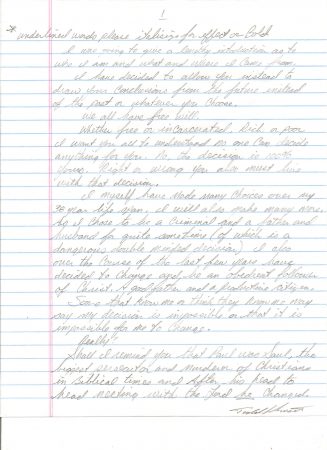 1
* underlined words please italicize for effect or Bold
I was going to give a lengthy introduction as to
who I am and what and where I came from.
I have decided to allow you instead to
draw your conclusions from the future instead
of the past or whatever you choose.
We all have free will.
Whether free or incarcerated. Rich or poor
I want you all to understand no one can decide
anything for you. No, the decision is 100%
yours. Right or wrong you also must live
with that decision.
I myself have made many choices over my
38 year life span, I will also make many more.
So I chose to be a criminal and a father and
husband for quite sometime (of which is a
dangerous double minded decision) I also
over the course of the last few years have
decided to change and be an obedient follower
of Christ. A good father and a productive citizen.
Some that know me or think they know me may
say my decision is impossible or that it is
impossible for me to change.
Really?
Shall I remind you that Paul was Saul, the
biggest persecutor and murderer of Christians
in Biblical times and after his head to
head meeting with the Lord he changed.